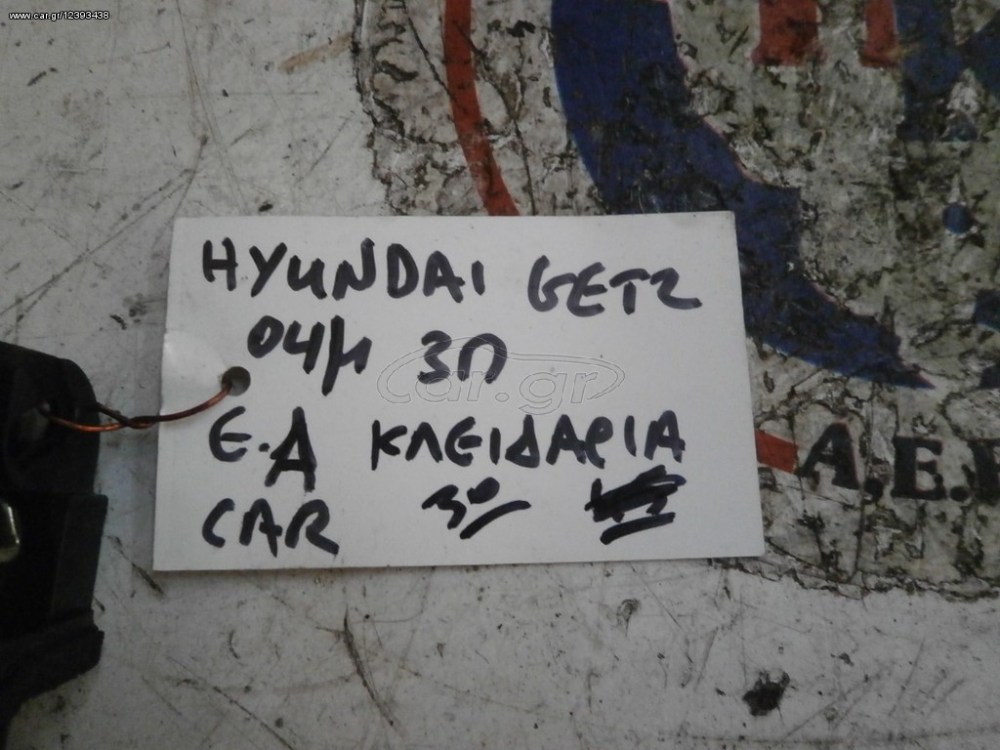 www.car.gr/12393438
HYUNDAI GETZ
04/Μ 3Π
car.gr
Ε.Δ ΚΛΕΙΔΑΡΙΑ
CAR 30
A.E.